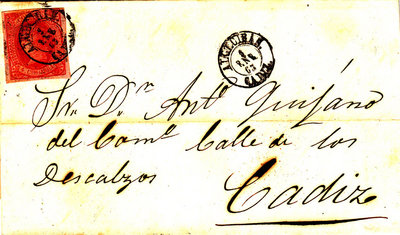 ALGECIRAS.
CADIZ.
Sr. Dn. Anto. Quijano
del Come. Calle de los
Descalzos
Cadiz